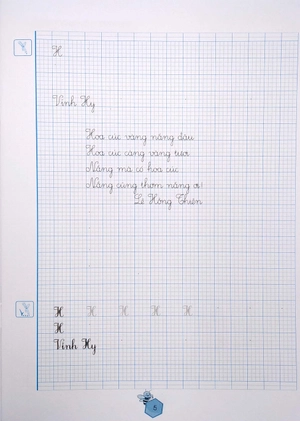 H
Vĩnh Hy
Hoa cúc vàng nắng dâu
Hoa cúc càng vàng tươi
Nắng mà có hoa cúc
Nắng cũng thơm nắng ơi!
Lê Hồng Thiện
H H H H H
H
Vĩnh Hy
5